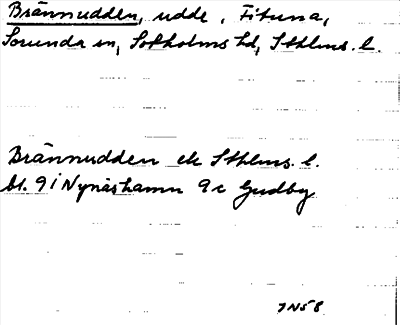 Brännudden, udde, Fituna,
Sorunda sn, Sotholms hd, Sthlms. l.
Brännudden ek Sthlms. l.
bl. 91 Nynäshamn 9c Gudby
7N58